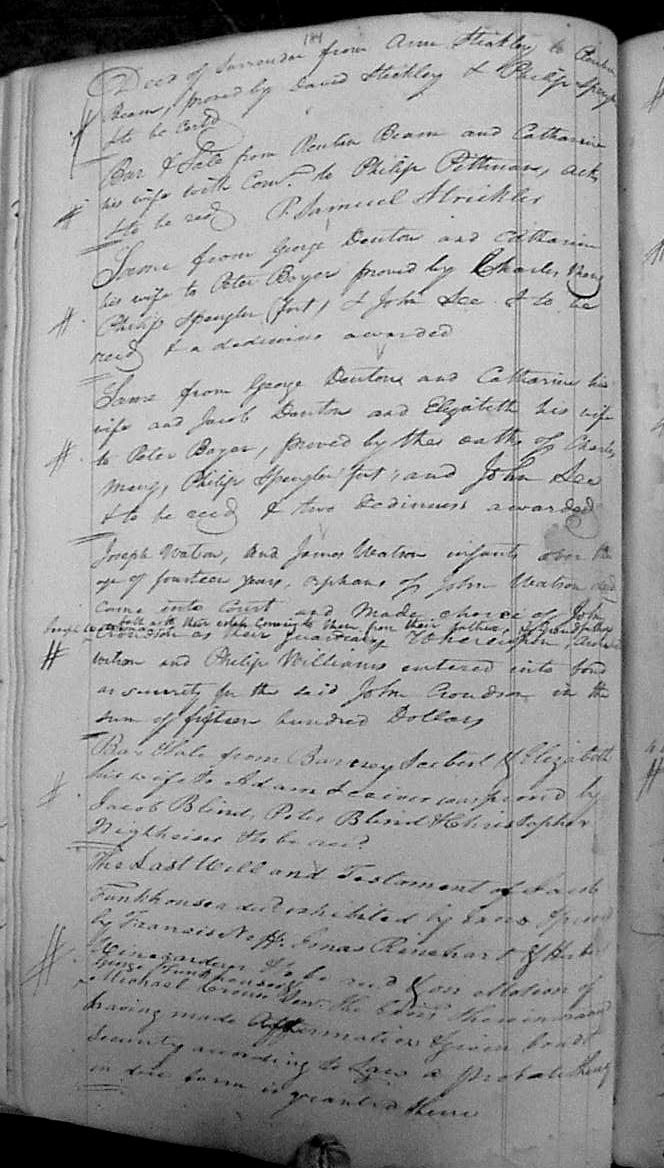 184
Deed of Surrender from Ann Stickley to Reuben
Beam, proved by David Stickley & Philip Spengler
& to be Certd
Bar & Sale from Reuben Beam and Catharine
his wife with Com. to Philip Pittman, ack
& to be recd P. Samuel Strickler
Same from George Denton and Catharine
his wife to Peter Boyer proved by Charles Mang
Philip Spengler (fort) & John Lee & to be
recd & a dedimus awarded
Same from George Denton and Catharine his
wife and Jacob Denton and Elizabeth his wife
to Peter Boyer, proved by the oaths of Charles
Mang, Philip Spengler fort, and John Lee
& to be recd & two Dedimus awarded
Joseph Watson, and James Watson infants over the
age of fourteen years, orphans of John Watson decd
came into Court and made choice of John
both with their estate Coming to them from their father, & Grand father
Croudson as their guardian, Whereupon,
Wilson and Philip Williams entered into bond
as security for the said John Croudson in the
sum of fifteen hundred Dollars
Bar & Sale from Barney Seebert & Elizabeth
his wife to Adam was proved by
Jacob Blind, Peter Blind & Christopher
& to be recd
The Last Will and Testament of Jacob
Funkhouser decd exhibited by proved
by Francis Neff, Jonas Rinehart &
Winegardner to be recd & on motion of
George Funkhouser &
Michael the therein named
having made Affirmation & given bond &
Security according to Law a probate thereof
in due form is granted them